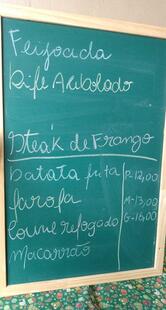 Feijoada
Bife Acebolado
Steak de Frango
Batata frita P-12,00
Farofa M-13,00
Couve refogado G-16,00
Macarrão